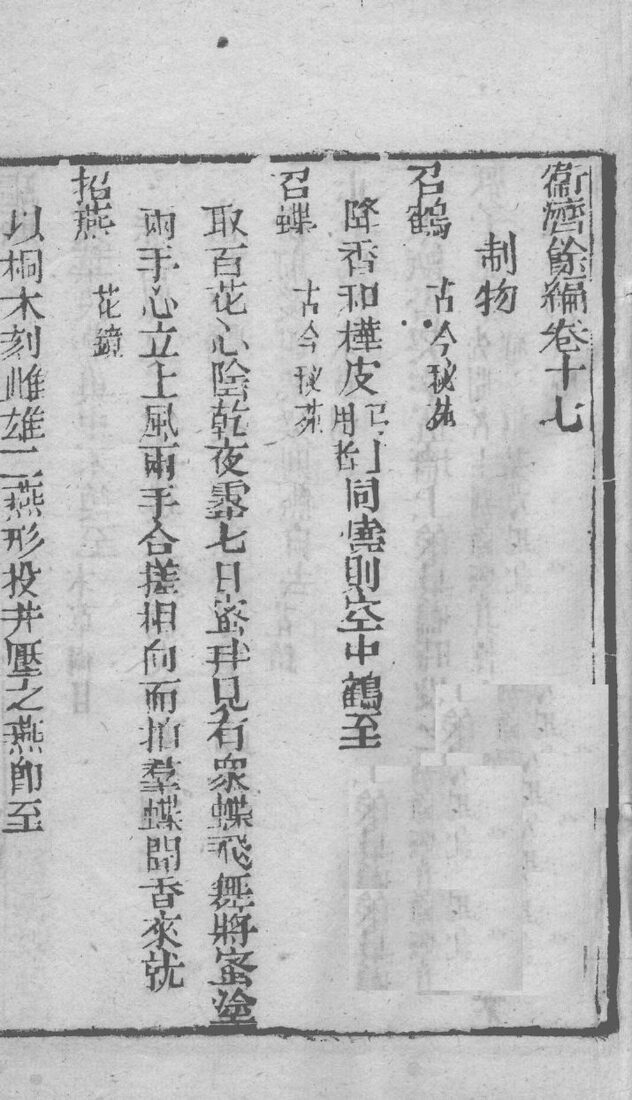 衞濟餘編卷十七
制物
召鶴 古今秘苑
降香和樺皮 同燒則空中鶴至
召蝶 古今秘苑
取百花心陰乾夜露七日蜜拌見有衆蝶飛舞將蜜塗
兩手心立上風兩手合搓相向而拍羣蝶聞香來就
招燕 花鏡
以桐木刻雌雄二燕形投井壓之燕卽至